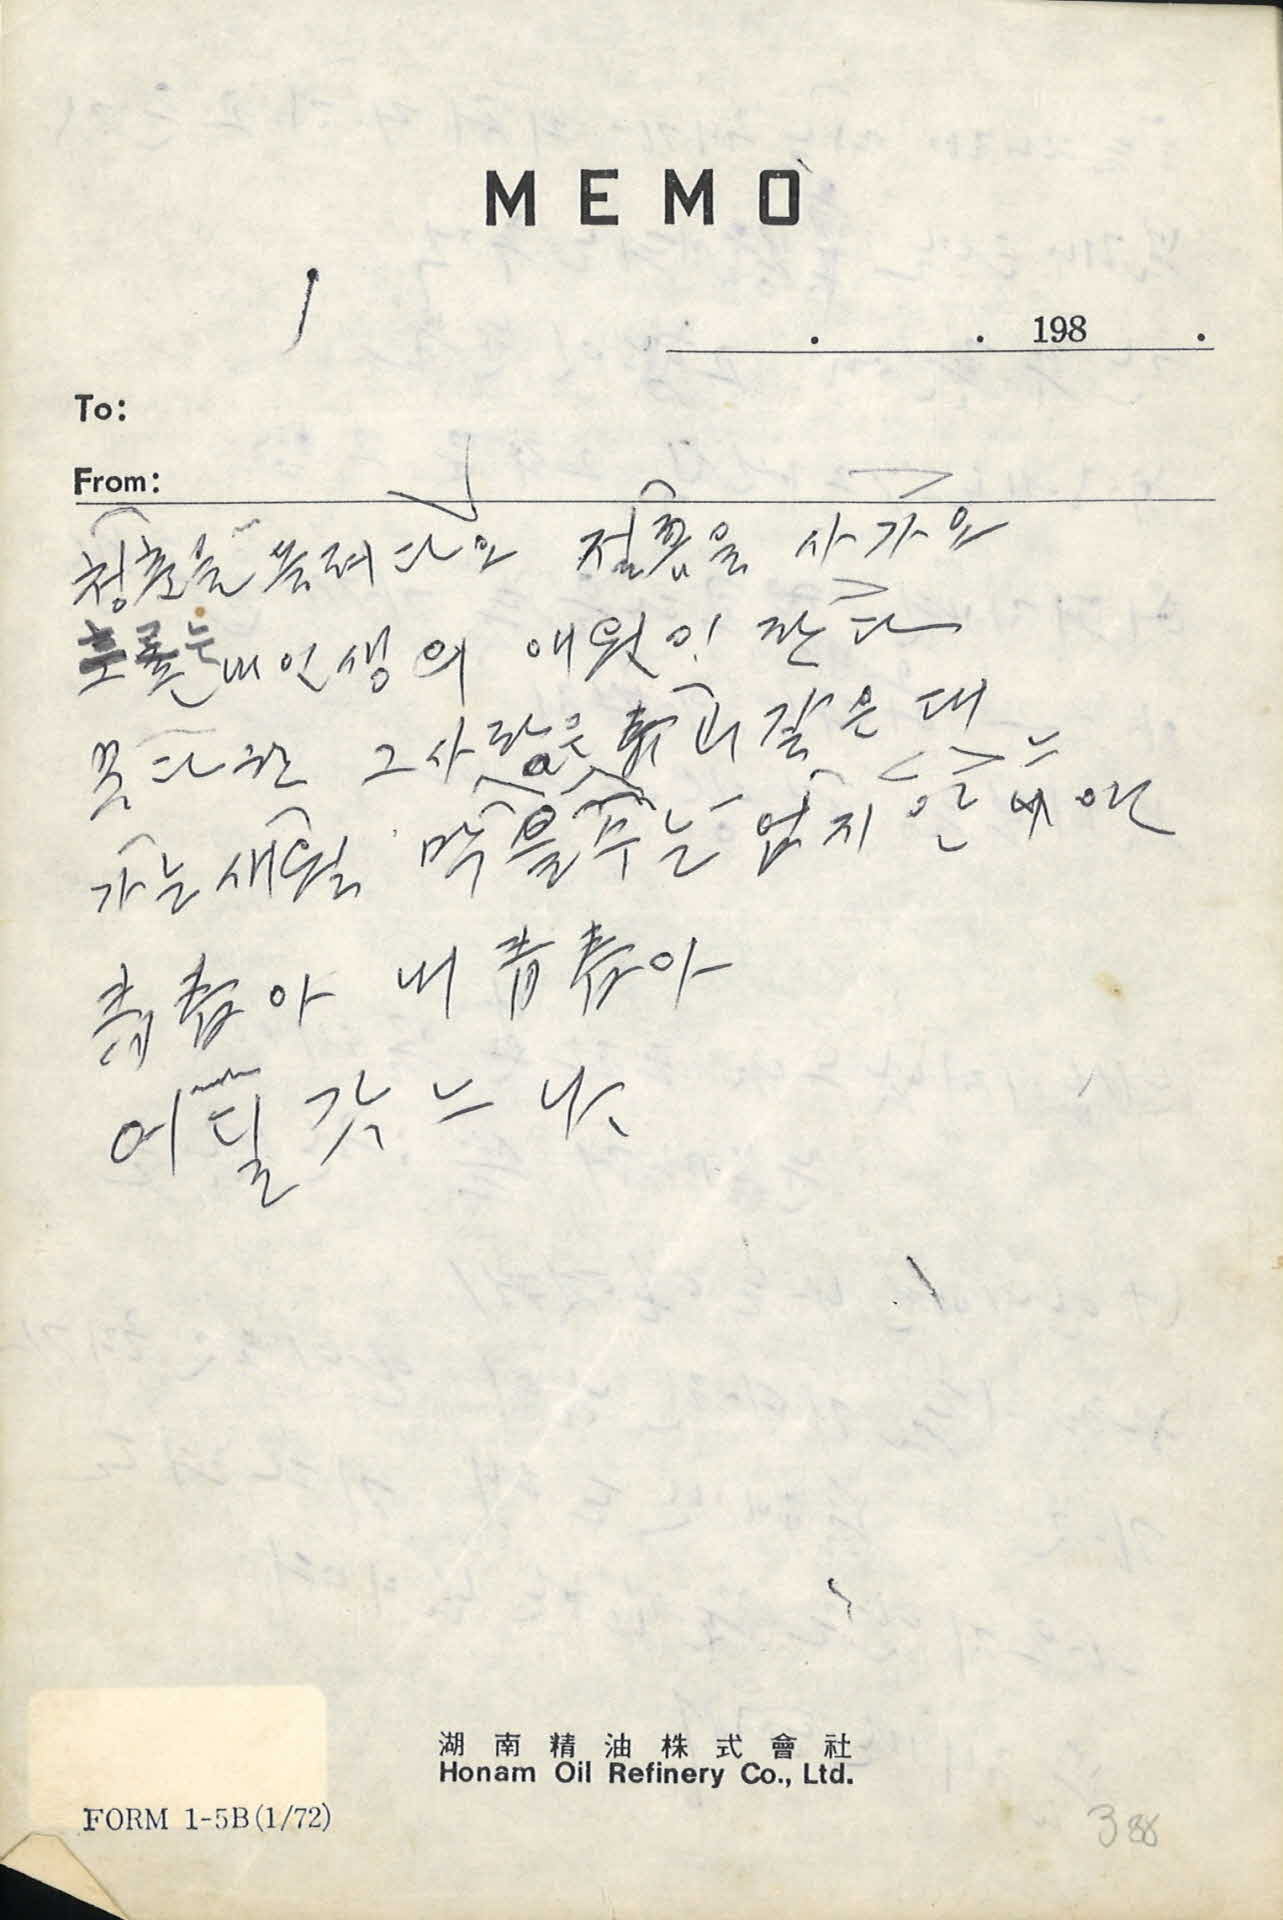 MEMO
198
To:
From:
청춘을 돌려다오 젊음을 사가오
흐르는 내인생의 애원이 란다
못다한 그사랑은 태산 같은대
가는새월 막을수는 없지 않
靑春아 내 靑春아
어딜 갓느냐
湖南精油株式會社
Honam Oil Refinery Co., Ltd.
FORM 1-5B(1/72)
388